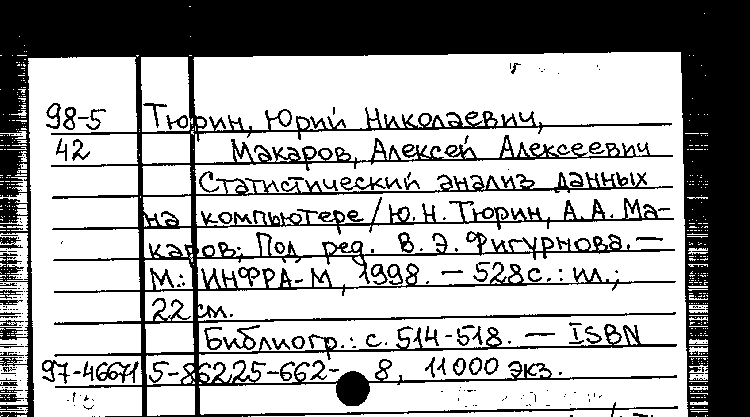 98-5 Тюрин, Юрий Николаевич,
42 Макаров, Алексей Алексеевич
Статистический анализ данных
на компьютере / Ю.Н. Тюрин, А.А. Ма-
каров; Под ред. В.Э. Фигурнова. —
М.: ИНФРА-М, 1998. — 528с.: ил.;
22 см.
Библиогр.: с. 514-518. — ISBN
97-46671 5-86225-662-8, 11000 экз.